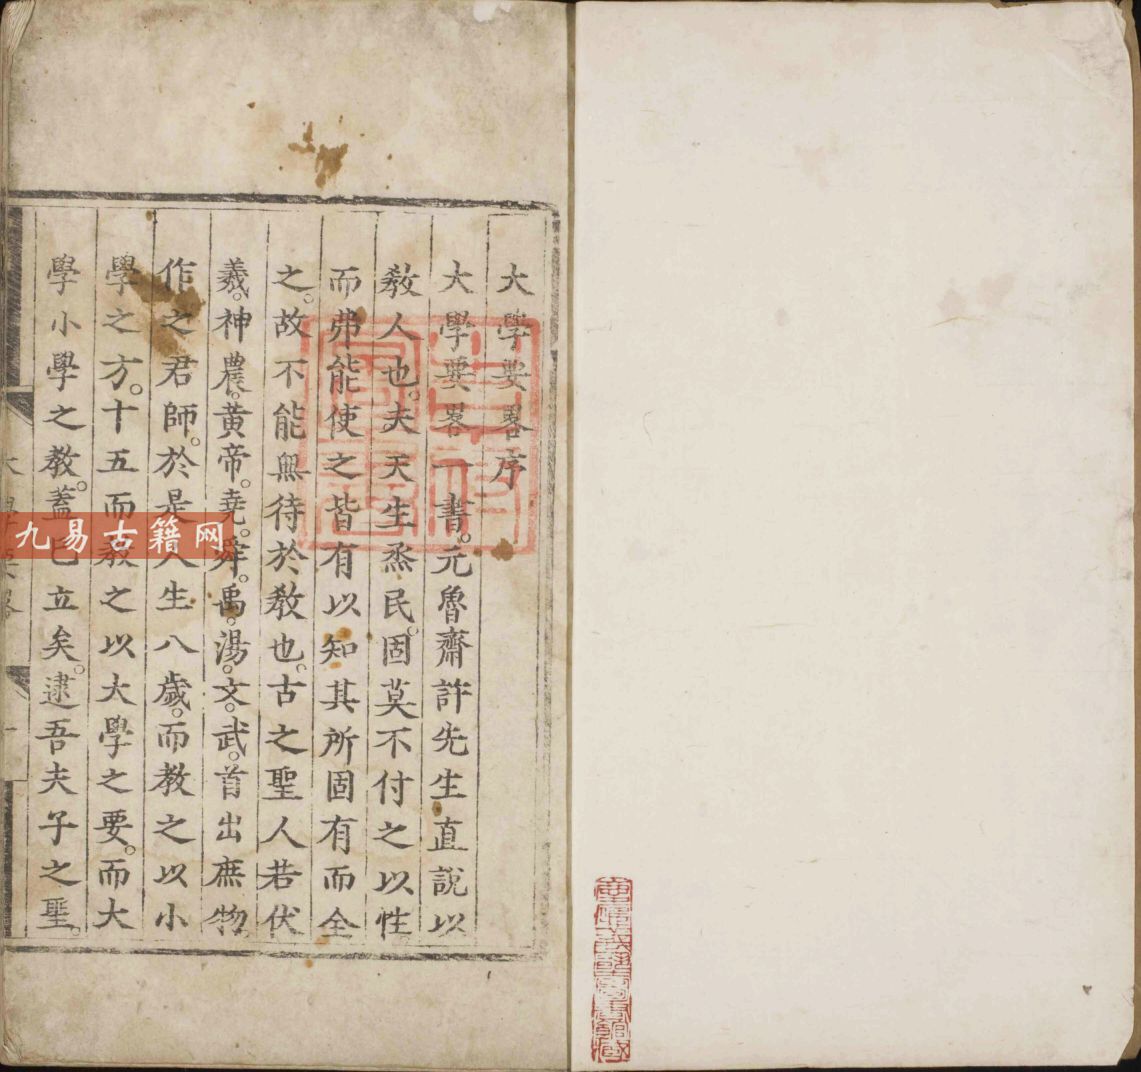 大學要畧序
大學要畧一書。元魯齋許先生直說以
敎人也。夫天生烝民。固莫不付之以性。
而弗能使之皆有以知其所固有而全
之。故不能無待於敎也。古之聖人若伏
羲。神農。黃帝。堯。舜。禹。湯。文。武。首出庶物。
作之君師。於是人生八歲。而教之以小
學之方。十五而教之以大學之要。而大
學小學之教。蓋已立矣。逮吾夫子之聖。
大學要畧
一
九易古籍网